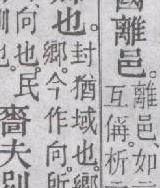 國離邑。
離邑、如
互偁。析
也。
封猶域也。
鄉今作向所
向也。民
也。
嗇夫別